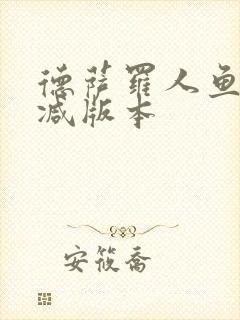 德萨罗人鱼
减版本
安筱乔